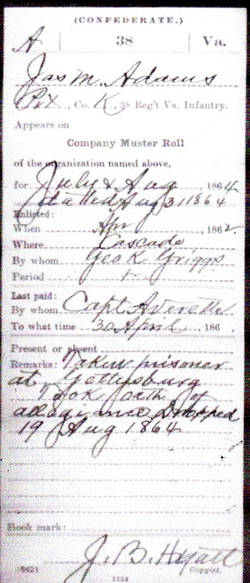 (CONFEDERATE.)
A 38 Va.
Jas M. Adams
Pvt., Co. K, 38 Reg't Va. Infantry.
Appears on
Company Muster Roll
of the organization named above,
for July & Aug, 1864
dated Aug 31 1864
Enlisted:
When Apr, 1862.
Where. Cascade
By whom Geo K Griggs
Period
Last paid:
By whom Capt Averette
To what time 30 April, 186
Present or absent
Remarks: Taken prisoner
at Gettysburg
Took oath of
allegiance Dropped
19 Aug 1864
Book mark:
J. B. Hyatt
Copyist.